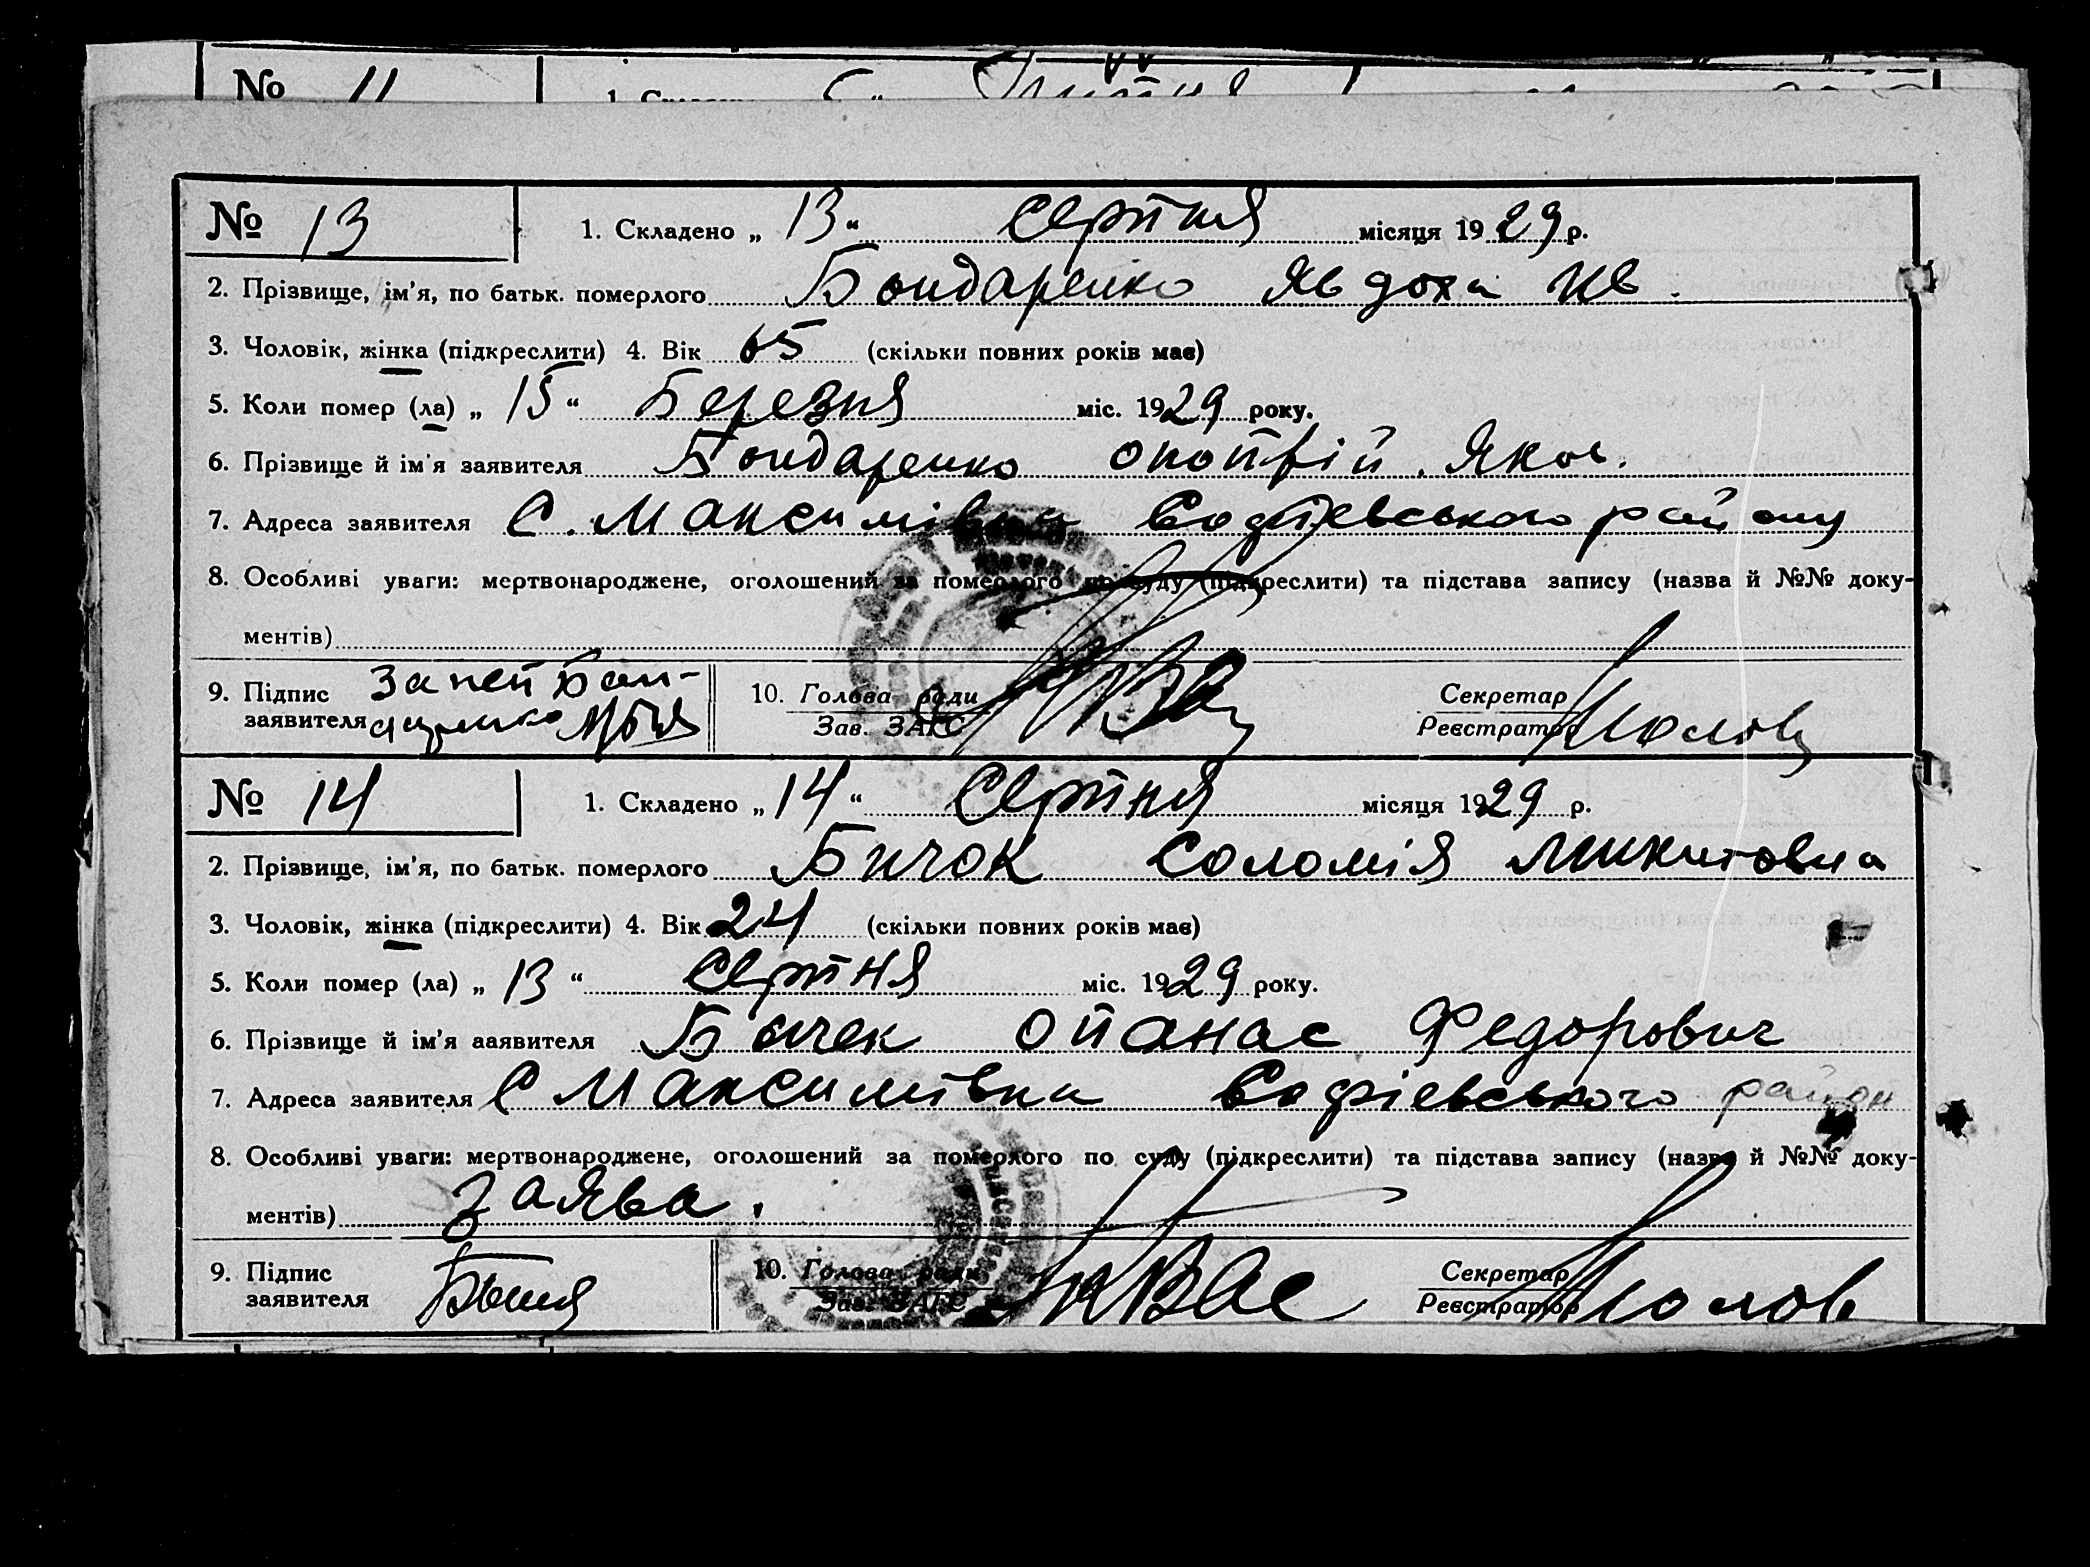 № 11
№ 13 1. Складено „ 13 “ Серпня місяця 1929 р.
2. Прізвище, ім’я, по батьк. померлого Бондаренко Явдоха Ив.
3. Чоловік, жінка (підкреслити) 4. Вік 65 (скільки повних років має)
5. Коли помер (ла) „ 15 “ Березня міс. 1929 року.
6. Прізвище й ім’я заявителя Бондаренко Яков.
7. Адреса заявителя С. Максимівка Софіевського району
8. Особливі уваги: мертвонароджене, оголошений за померлого по суду (підкреслити) та підстава запису (назва й №№ доку-
ментів)
9. Підпис 10. Голова ради Секретар
заявителя Зав. ЗАГС Реєстратор
№ 14 1. Складено „ 14 “ Серпня місяця 1929 р.
2. Прізвище, ім’я, по батьк. померлого Бичок Соломія Микитовна
3. Чоловік, жінка (підкреслити) 4. Вік 24 (скільки повних років має)
5. Коли помер (ла) „ 13 “ Серпня міс. 1929 року.
6. Прізвище й ім’я заявителя Бичек Опанас Федорович
7. Адреса заявителя С Максимівка Софіевського район
8. Особливі уваги: мертвонароджене, оголошений за померлого по суду (підкреслити) та підстава запису (назва й №№ доку-
ментів) заява.
9. Підпис 10. Голова ради Секретар
заявителя Зав. ЗАГС Реєстратор